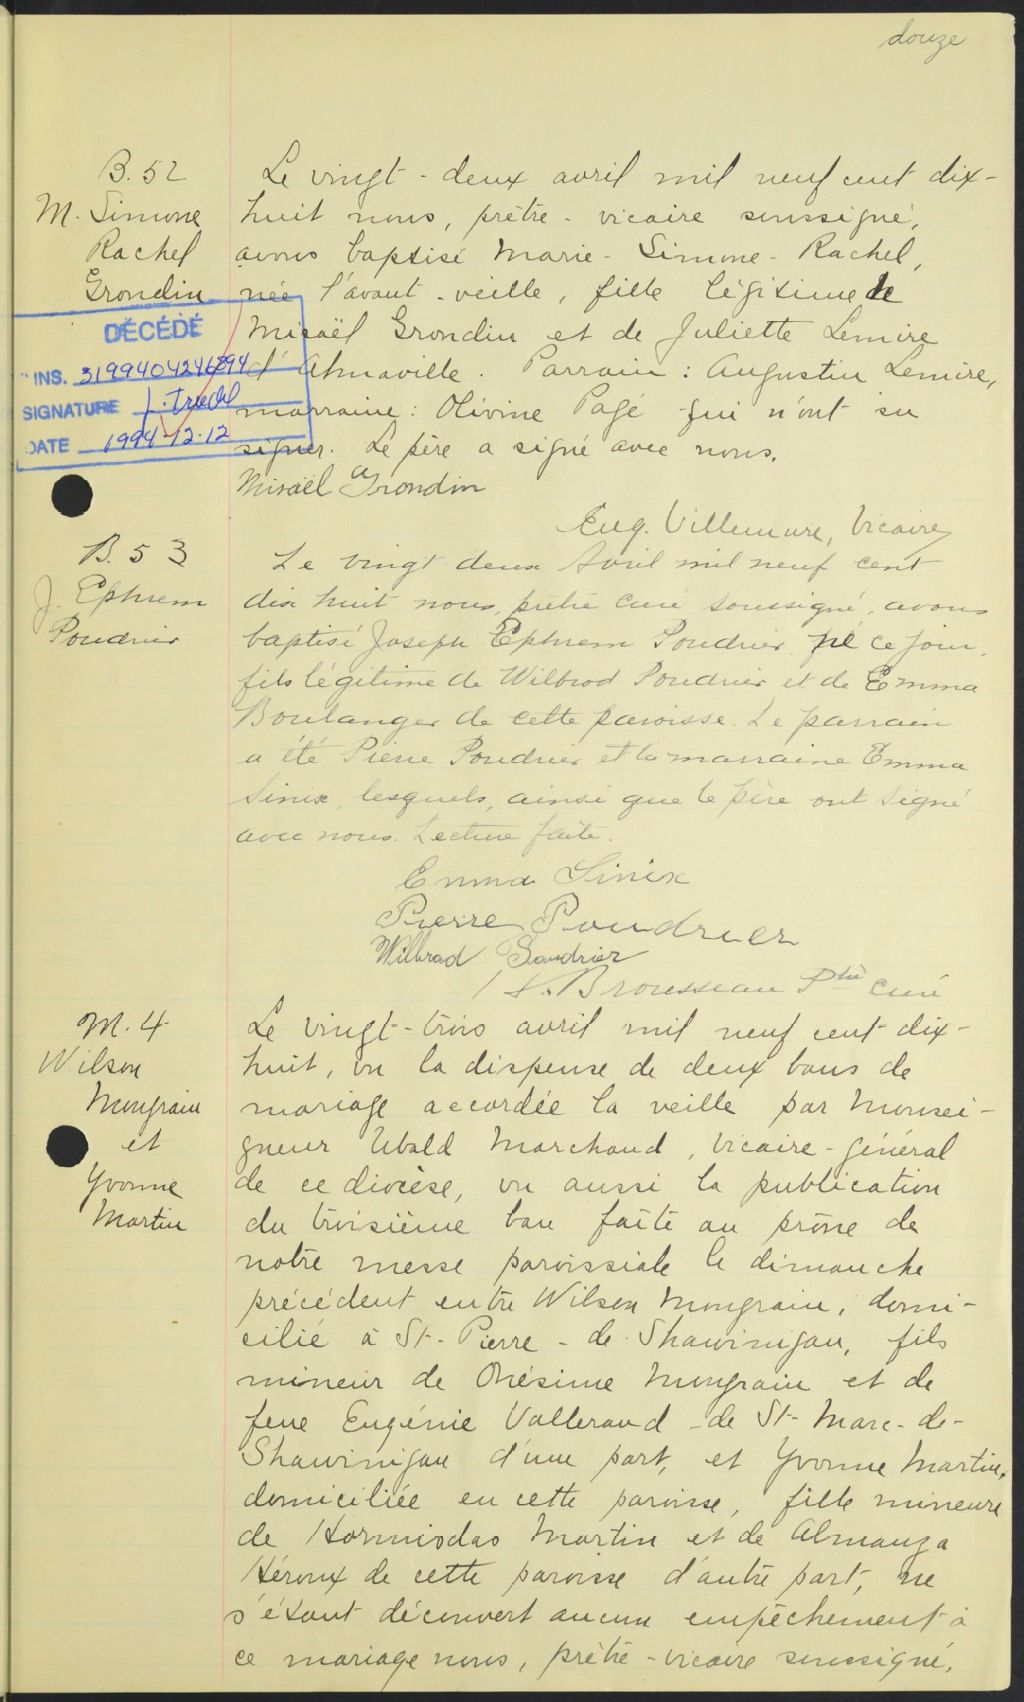 douze
B. 52
M. Simone
Rachel
Grondin
Le vingt-deux avril mil neuf cent dix-
huit nous, prêtre-vicaire soussigné,
avons baptisé Marie-Simone-Rachel,
née l'avant-veille, fille légitime de
Misaël Grondin et de Juliette Lemire
d'Almaville. Parrain: Augustin Lemire,
marraine: Olivine Pagé qui n'ont su
signer. Le père a signé avec nous.
DÉCÉDÉ
INS. 3199404246894
SIGNATURE
DATE 1994-12-12
Misaël Grondin
Eug. Villemure, Vicaire
B. 53
J. Ephrem
Poudrier
Le vingt deux Avril mil neuf cent
dix huit nous, prêtre curé soussigné, avons
baptisé Joseph Ephrem Poudrier né ce jour,
fils légitime de Wilbrod Poudrier et de Emma
Boulanger de cette paroisse. Le parrain
a été Pierre Poudrier et la marraine Emma
Sinix, lesquels, ainsi que le père ont signé
avec nous. Lecture faite.
Emma Sinix
Pierre Poudrier
Wilbrad Poudrier
Brousseau Ptre curé
M. 4
Wilson
Mongrain
et
Yvonne
Martin
Le vingt-trois avril mil neuf cent dix-
huit, vu la dispense de deux bans de
mariage accordée la veille par Monsei-
gneur Ubald Marchand, vicaire-général
de ce diocèse, vu aussi la publication
du troisième ban faite au prône de
notre messe paroissiale le dimanche
précédent entre Wilson Mongrain, domi-
cilié à St-Pierre-de-Shawinigan, fils
mineur de Onésime Mongrain et de
feue Eugénie Vallerand de St-Marc-de-
Shawinigan d'une part, et Yvonne Martin,
domiciliée en cette paroisse, fille mineure
de Hormisdas Martin et de Almanza
Héroux de cette paroisse d'autre part, ne
s'étant découvert aucun empêchement à
ce mariage nous, prêtre-vicaire soussigné,